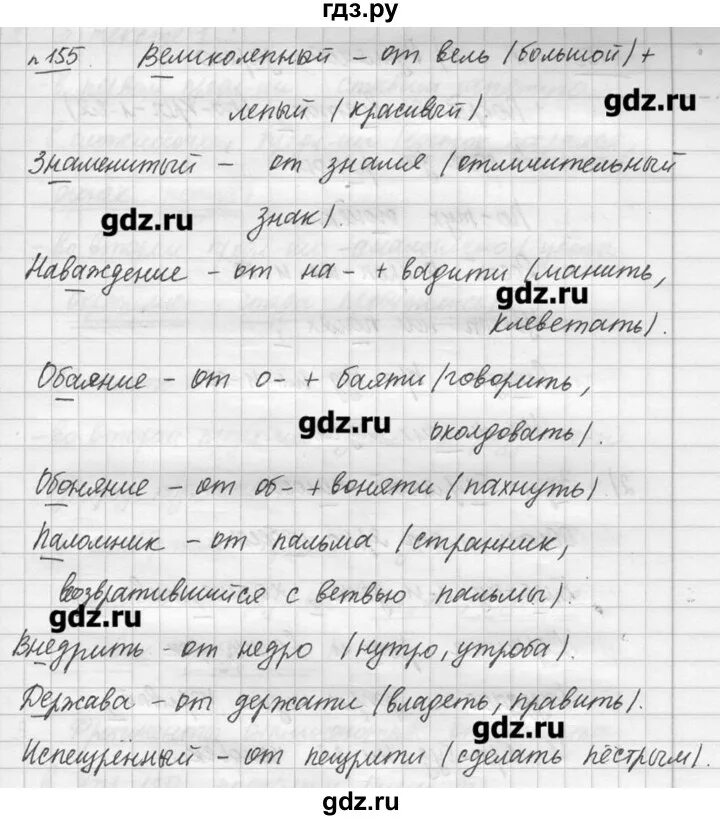 гдз.ру
n 155. Великолепный - от вель (большой) +
лепый (красивый)
gdz.ru
Знаменитый - от знамя (отличительный
gdz.ru знак).
Наваждение - от на- + вадити (манить,
gdz.ru
клеветать).
Обаяние - от о- + баяти (говорить,
gdz.ru
околдовать).
Обоняние - от об- + воняти (пахнуть)
Паломник - от пальма (странник,
возвратившийся с ветвью пальмы).
gdz.ru
Внедрить - от недро (нутро, утроба).
Держава - от держати (владеть, править).
gdz.ru
Испещренный - от пещрити (сделать пёстрым).
gdz.ru